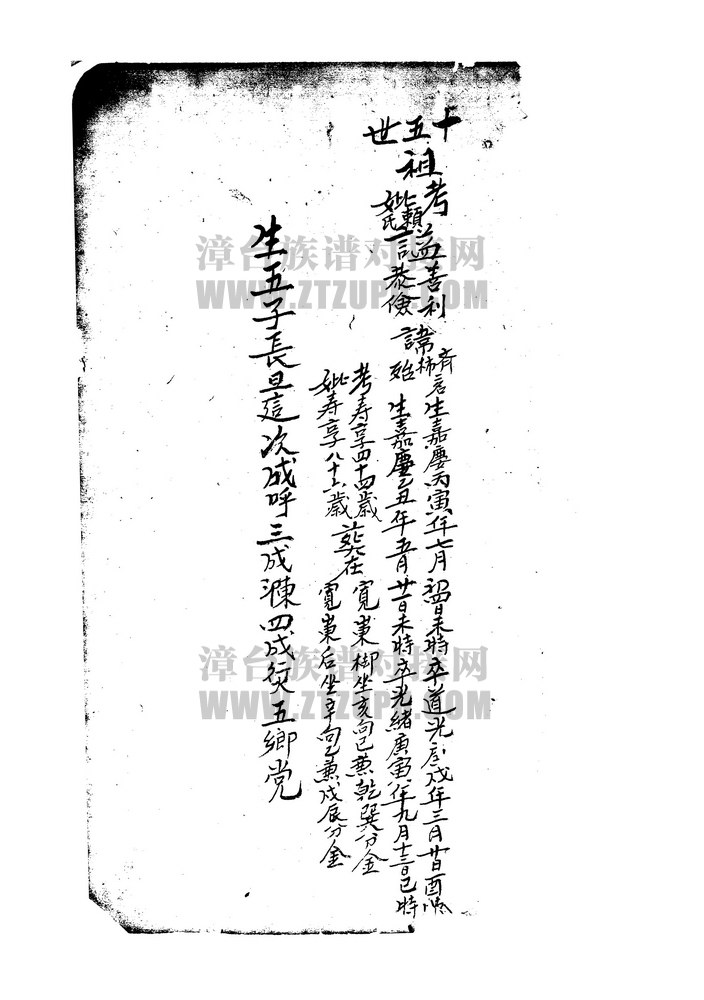 十五世
祖考諡善利諱 齊 生嘉慶丙寅年七月 日未時卒道光 戌年三月廿日酉時
妣賴氏諡恭儉 生嘉慶乙丑年五月廿一日未時卒光緒庚寅年九月十三日巳時
考寿享四十四歲
妣寿享八十六歲
葬在
寬 柳坐亥向巳兼乾巽分金
寬 后坐辛向乙兼戌辰分金
生五子長旦這次成呼三成 四成 五鄉党
漳台族谱对接网
WWW.ZTZUPU.COM
漳台族谱对接网
WWW.ZTZUPU.COM